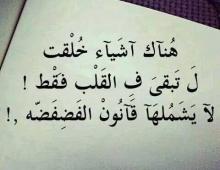 هُنآك آشَيآء خُلقت
لَ تَبقىَ فِ القَلْب فَقْط !
لآ يَشَملهَآ قَآنُونْ الفَضِفَضّه ,!